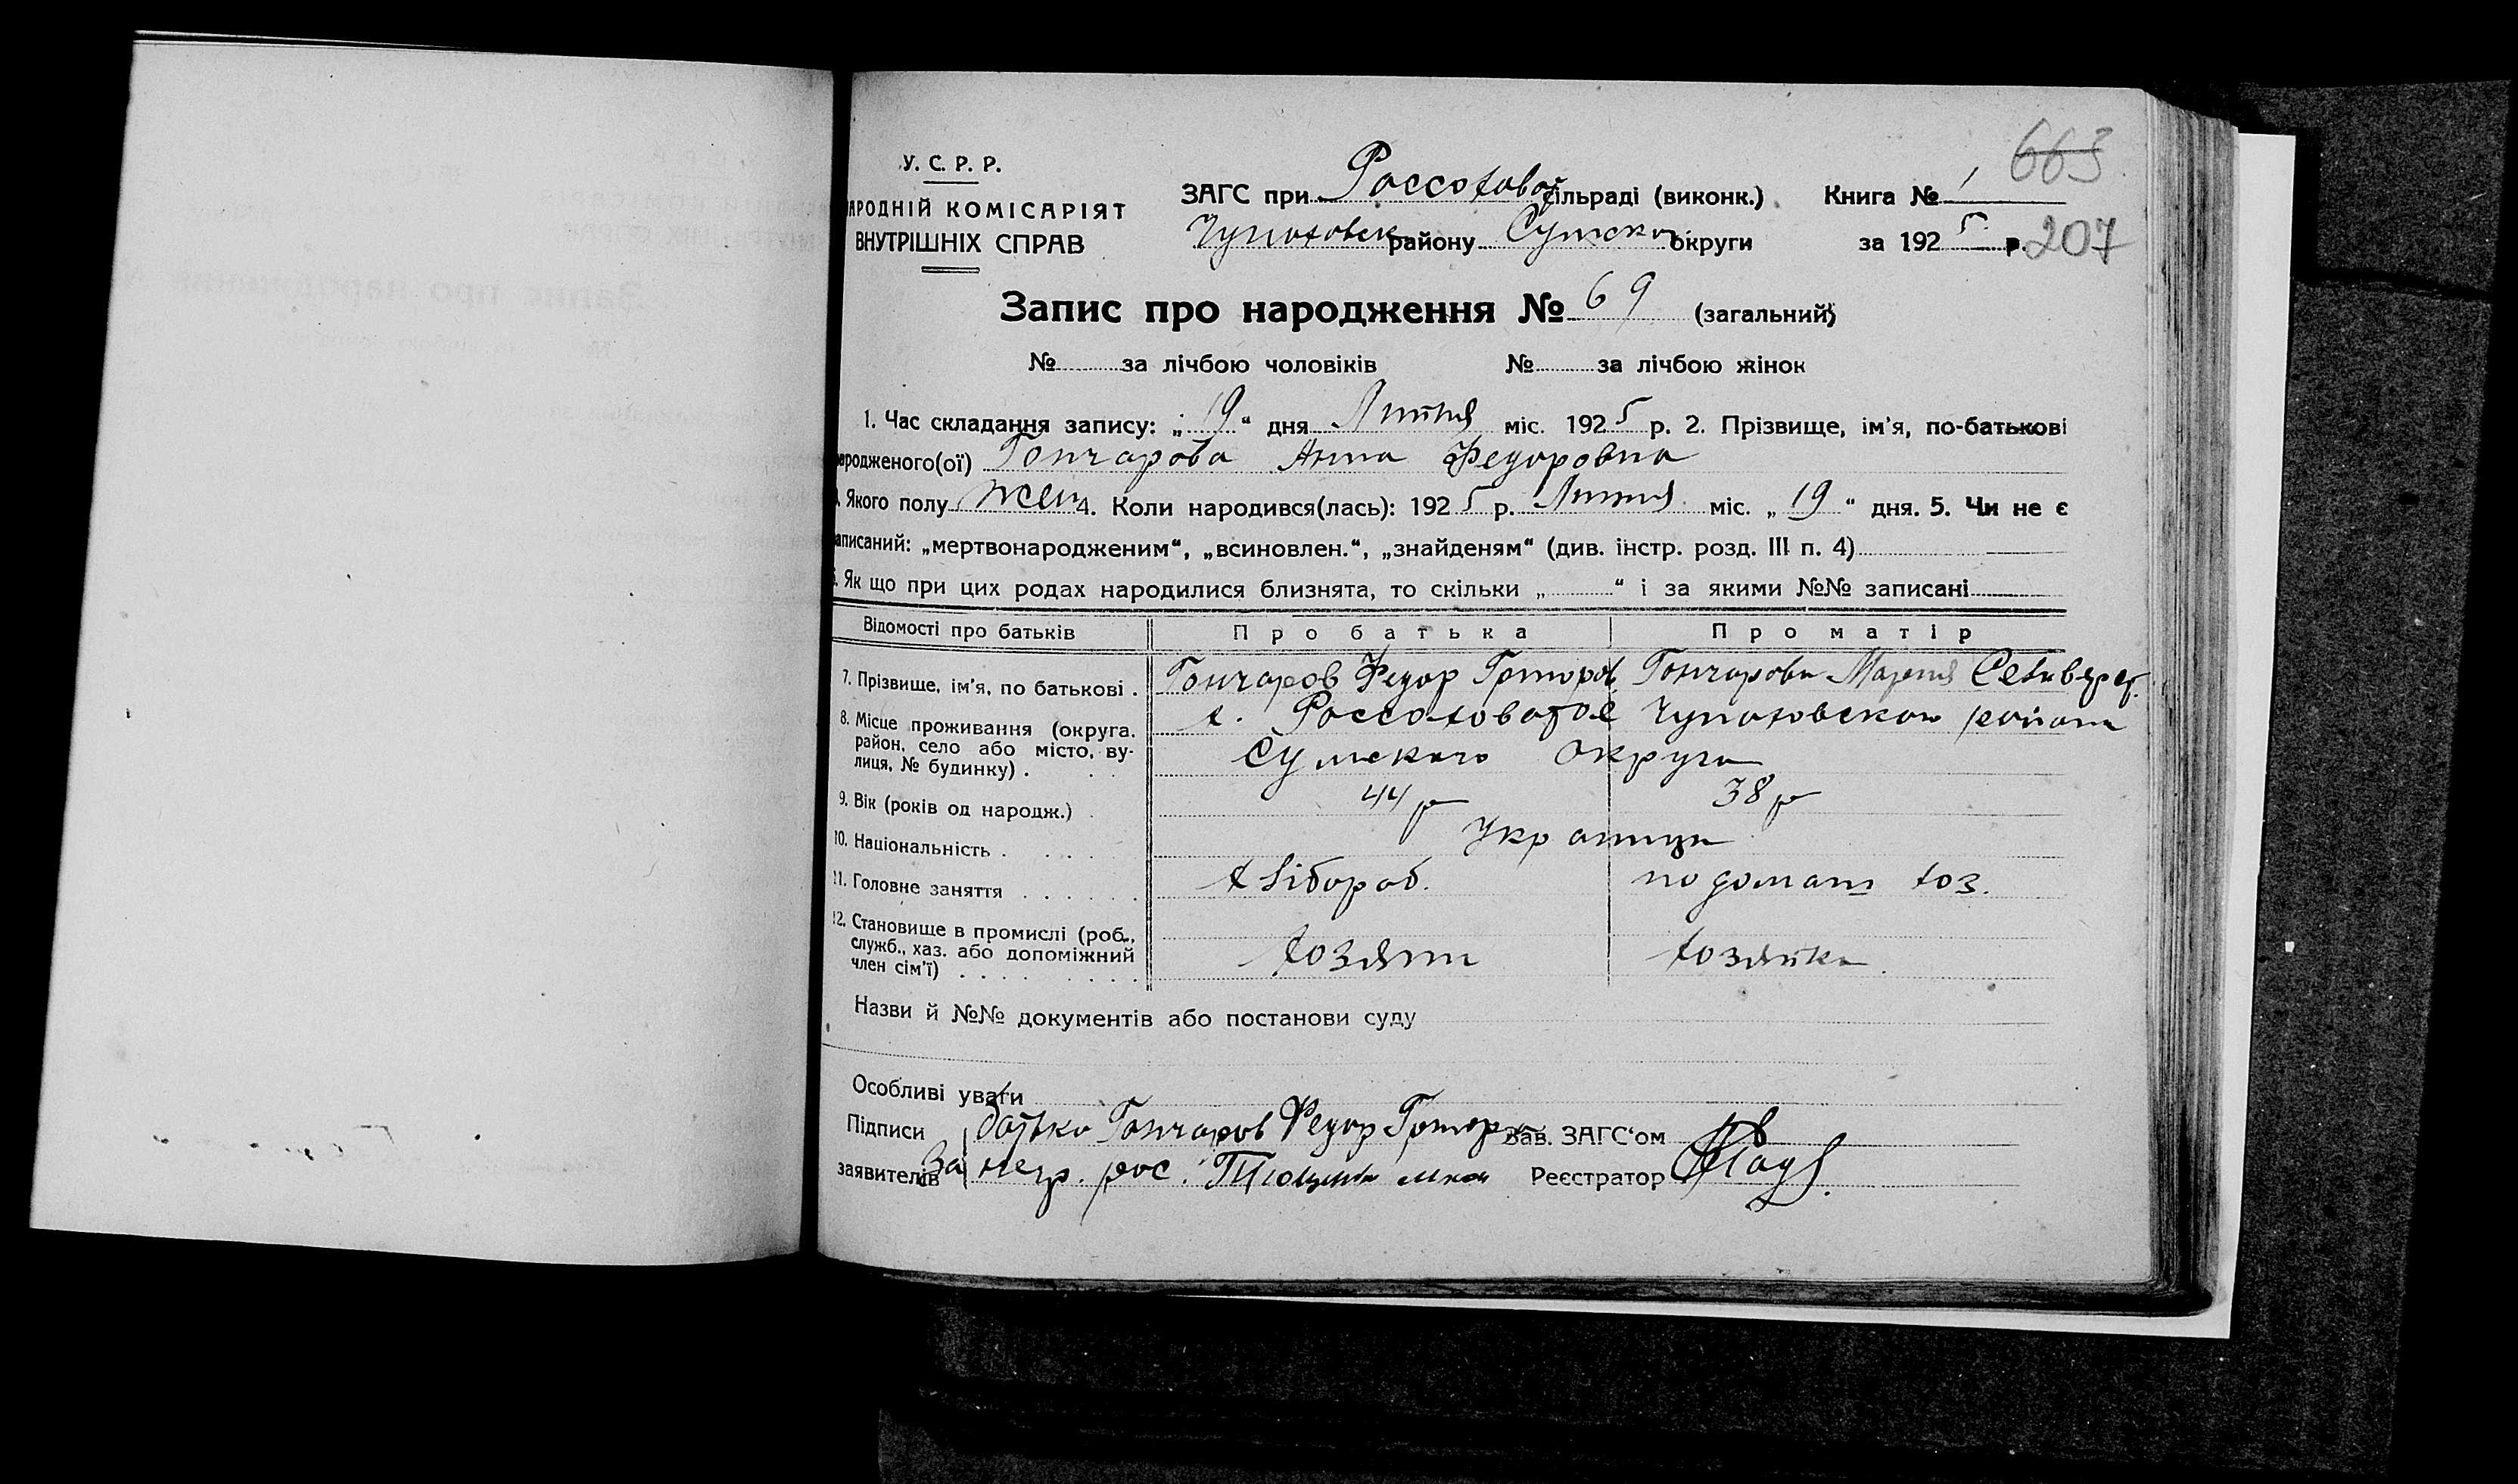 663
У. С. Р. Р.
АРОДНІЙ КОМІСАРІЯТ
ВНУТРІШНІХ СПРАВ
ЗАГС при Россохова сільраді (виконк.) Книга № 1
Чупаховск району Сумско округи за 1925 р. 207
Запис про народження № 69 (загальний)
№ за лічбою чоловіків № за лічбою жінок
1. Час складання запису: „19“ дня Липня міс. 1925 р. 2. Прізвище, ім'я, по-батькові
ародженого(ої) Гончарова Анна Федоровна
. Якого полу жен 4. Коли народився(лась): 1925 р. Липня міс. „19“ дня. 5. Чи не є
аписаний: „мертвонародженим“, „всиновлен.“, „знайденям“ (див. інстр. розд. III п. 4)
. Як що при цих родах народилися близнята, то скільки „ “ і за якими №№ записані
Відомості про батьків Про батька Про матір
7. Прізвище, ім'я, по батькові . Гончаров Федор Григоров Гончарова Мария
8. Місце проживання (округа. район, село або місто, вулиця, № будинку) . х. Россоховатое Чупаховского района
Сумского округа
9. Вік (років од народж.) 44 р 38 р
10. Національність . Украинци
11. Головне заняття хлібороб. по домаш хоз.
12. Становище в промислі (роб., служб., хаз. або допоміжний член сім'ї) хозяин хозяйка
Назви й №№ документів або постанови суду
Особливі уваги
Підписи батько Гончаров Федор Григор Зав. ЗАГС‘ом
заявителів За негр. рос. Реєстратор